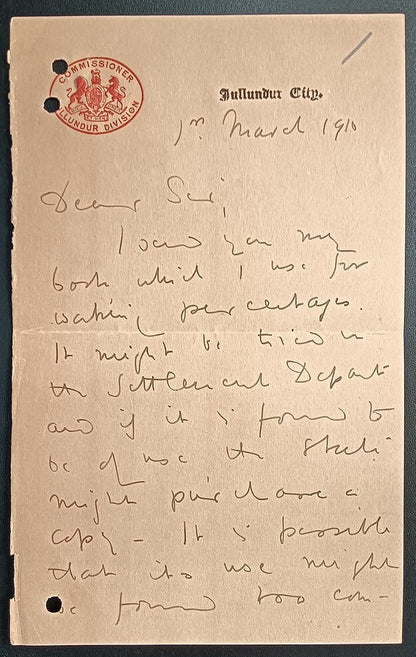 COMMISSIONER
JULLUNDUR DIVISION
Jullundur City.
1st March 1910
Dear Sir,
I send you my
book which I use for
working percentages.
It might be tried in
the Settlement Depart
and if it is found to
be of use the State
might purchase a
copy – It is possible
that its use might
be found too com-